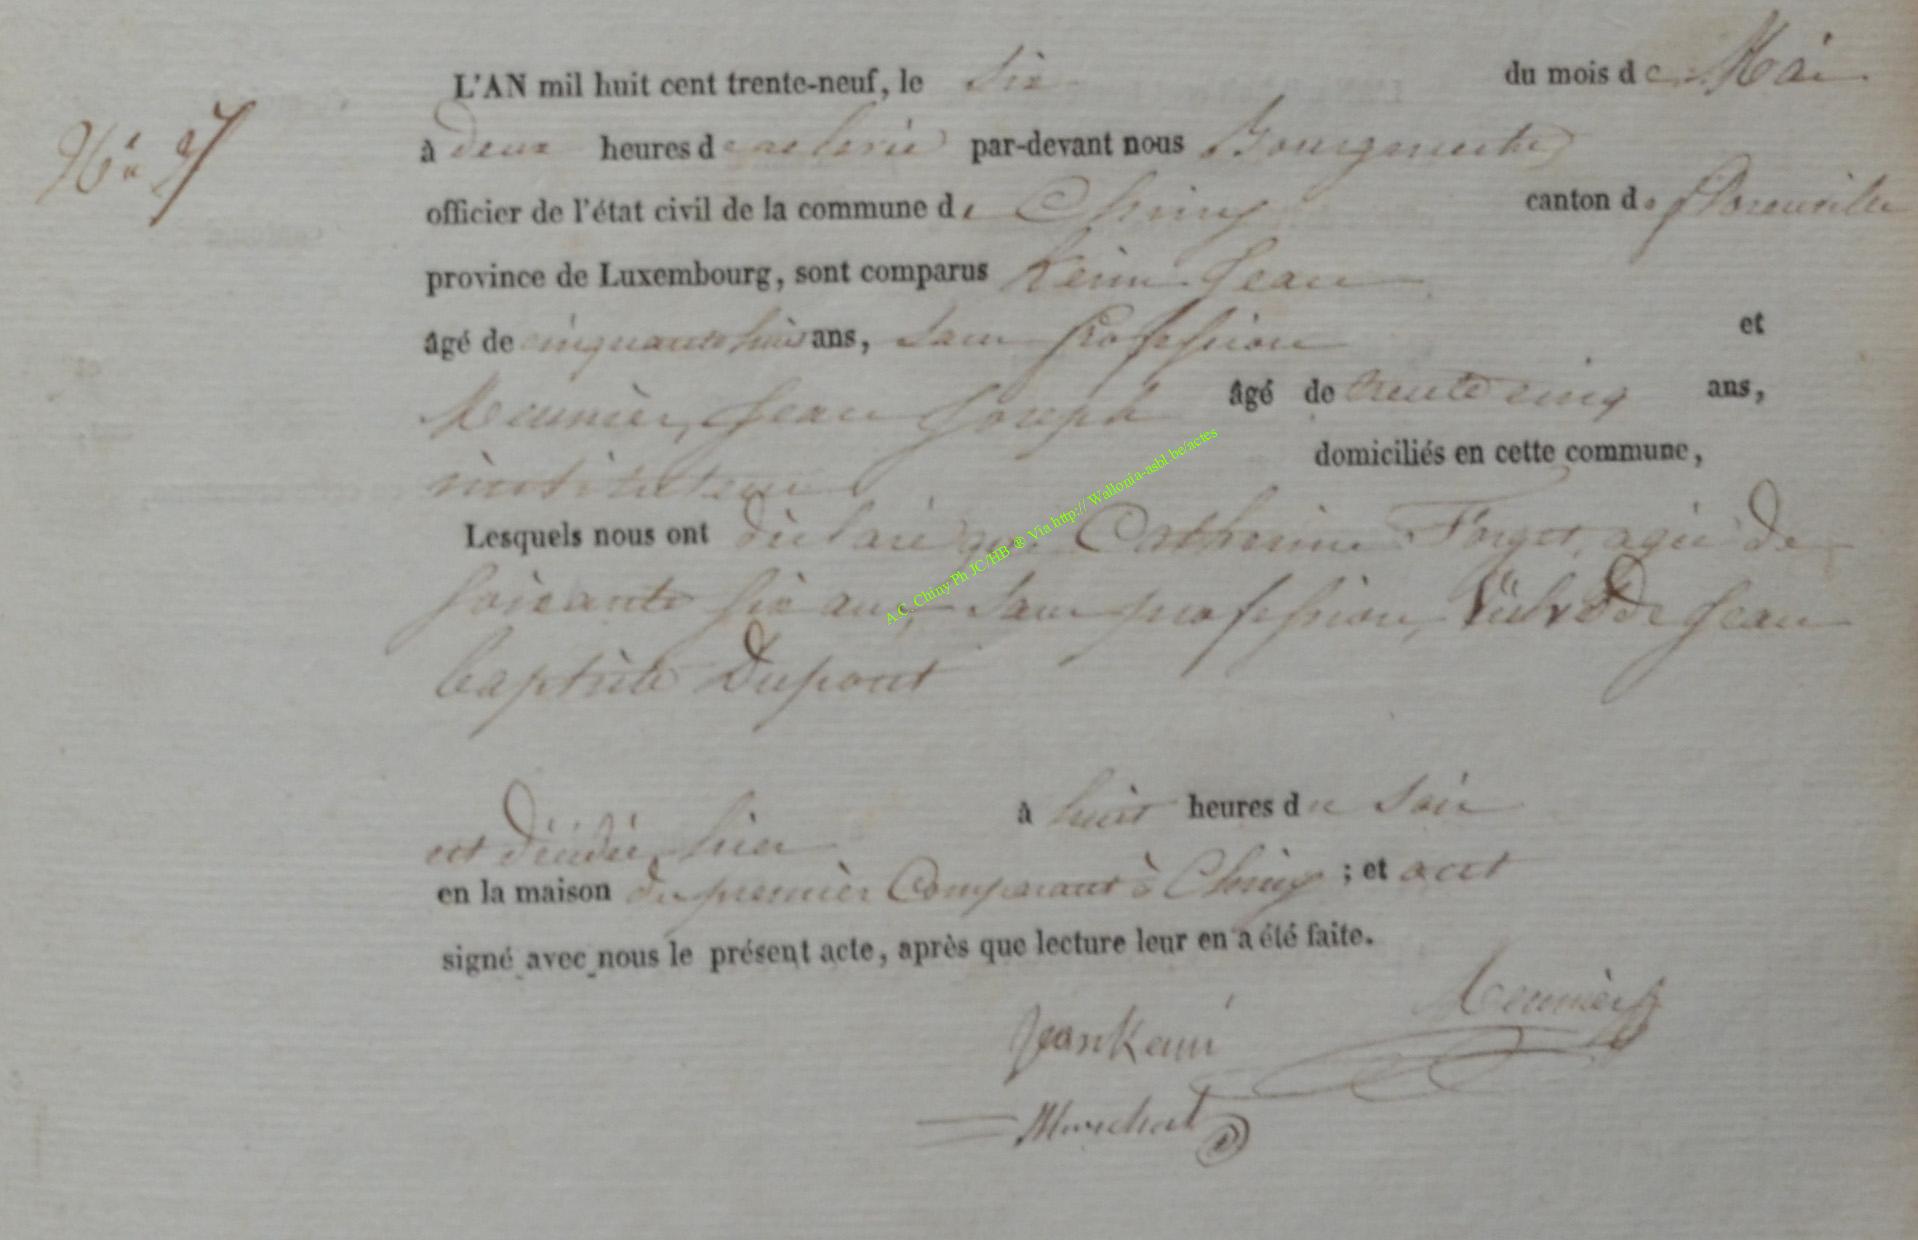 L'AN mil huit cent trente-neuf, le six du mois de Mai
à deux heures de relevée par-devant nous Bourgmestre
officier de l'état civil de la commune de Chiny canton de florenville
province de Luxembourg, sont comparus Jean
âgé de cinquante huit ans, sans profession et
Meunier, Jean Joseph âgé de trente cinq ans,
instituteur domiciliés en cette commune,
Lesquels nous ont déclaré que Catherine Forget, agée de
soixante six ans, sans profession, de Jean
baptiste Dupont
est décédée hier à huit heures du soir
en la maison du premier Comparant à Chiny ; et ont
signé avec nous le présent acte, après que lecture leur en a été faite.
Jean Meunier
A.C. Chiny Ph JC/HB ® Via http:// Wallonia-asbl.be/actes